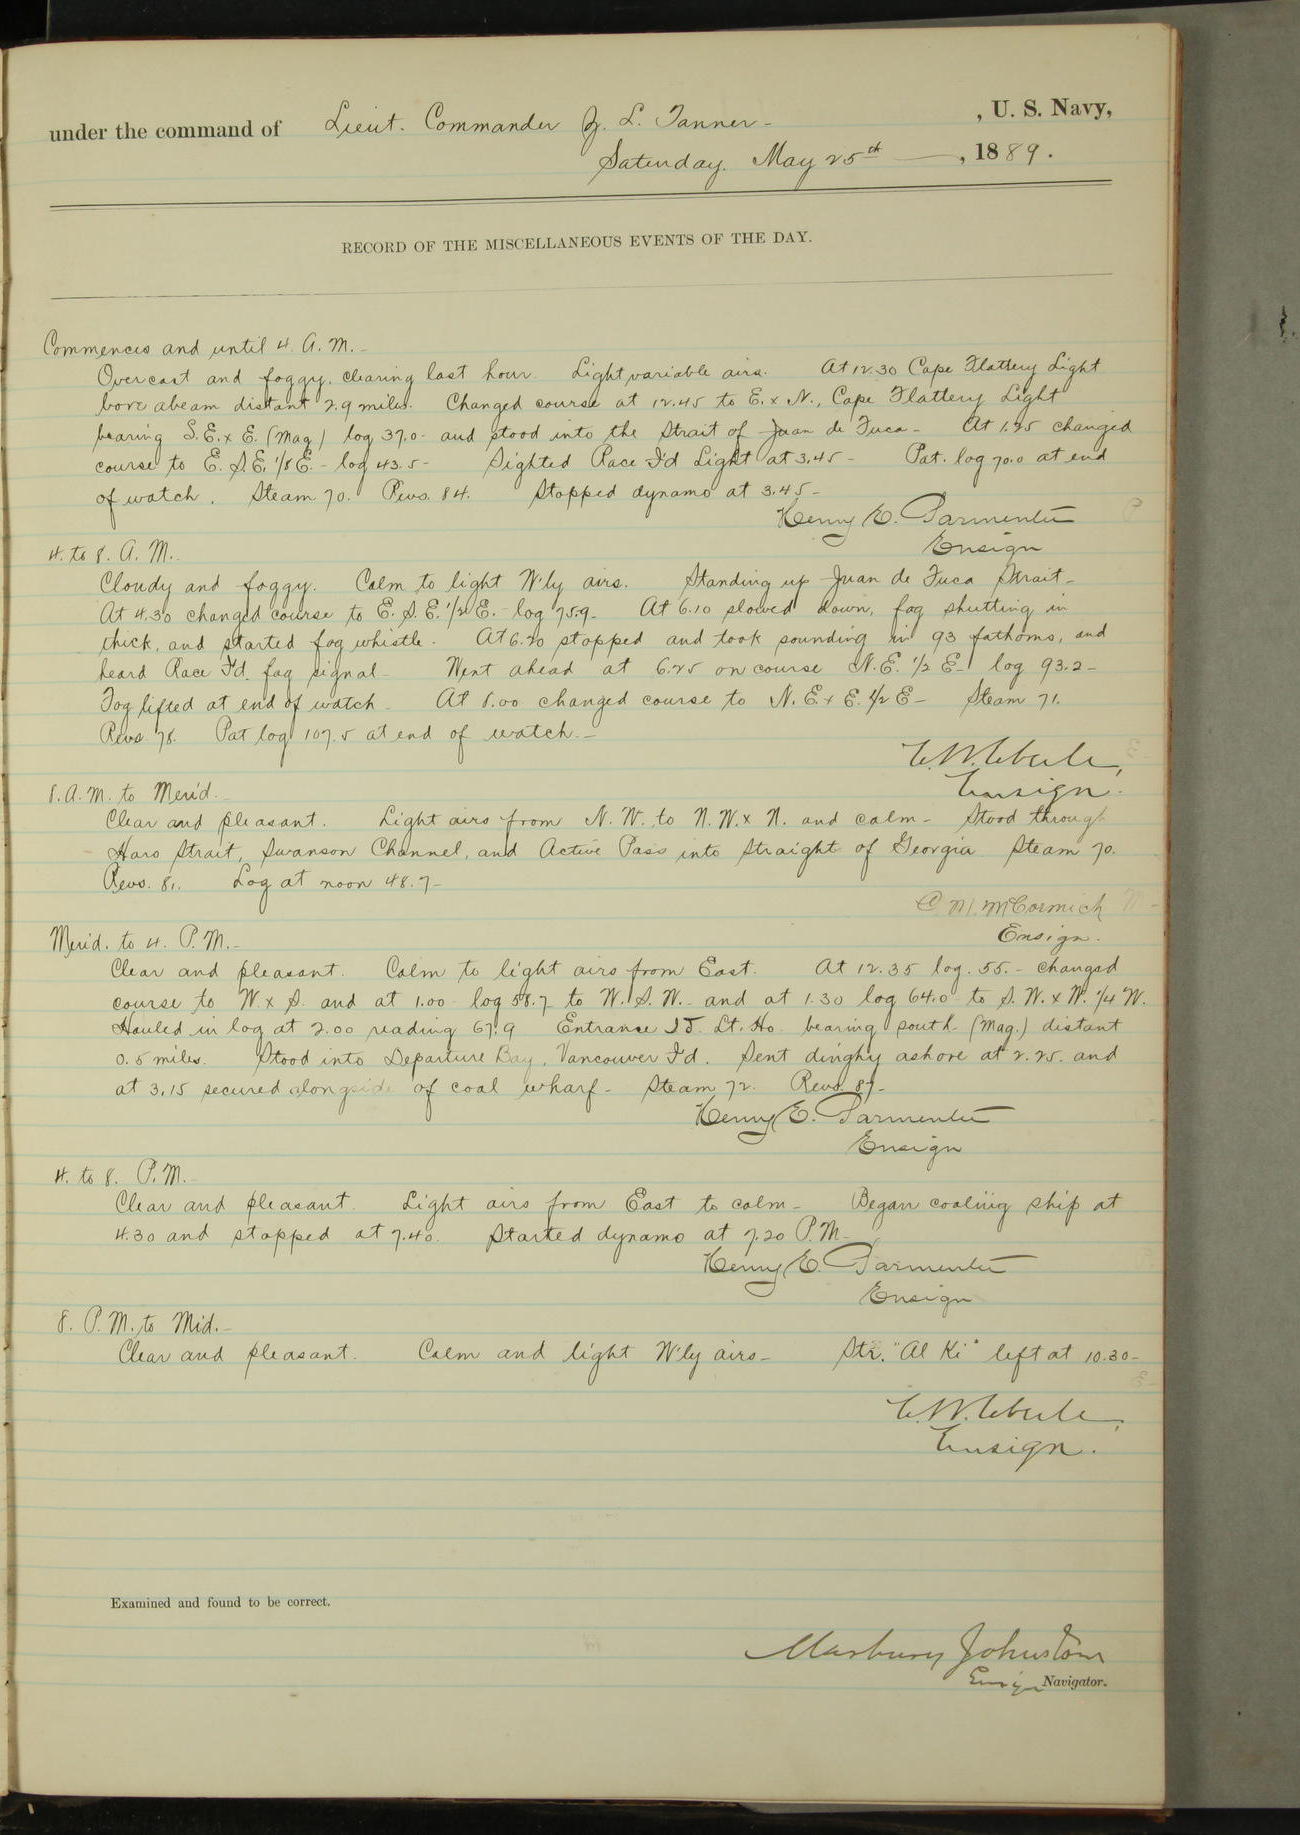 under the command of Lieut. Commander Z. L. Tanner - , U. S. Navy,
Saturday, May 25th — , 1889.
RECORD OF THE MISCELLANEOUS EVENTS OF THE DAY.
Commences and until 4 A. M. -
Overcast and foggy, clearing last hour. Light variable airs. At 12.30 Cape Flattery Light
bore abeam distant 2.9 miles. Changed course at 12.45 to E. x N., Cape Flattery Light
bearing S. E. x E. (Mag) log 37.0 - and stood into the Strait of Juan de Fuca - At 1.25 changed
course to E. S. E. 1/8 E. - log 43.5 - Sighted Race I'd Light at 3.45 - Pat. log 70.0 at end
of watch. Steam 70. Revs. 84. Stopped dynamo at 3.45 -
Henry E. Parmenter
Ensign
4. to 8. A. M. -
Cloudy and foggy. Calm to light W'ly airs. Standing up Juan de Fuca Strait -
At 4.30 changed course to E. S. E. 1/2 E. - log 75.9 - At 6.10 slowed down, fog shutting in
thick, and started fog whistle. At 6.20 stopped and took sounding in 93 fathoms, and
heard Race I'd. fog signal - Went ahead at 6.25 on course N. E. 1/2 E - log 93.2 -
Fog lifted at end of watch - At 8.00 changed course to N. E. x E. 1/2 E - Steam 71.
Revs. 78. Pat log 107.5 at end of watch. -
E. W. Eberle,
Ensign.
8. A. M. to Merid. -
Clear and pleasant. Light airs from N. W. to N. W. x N. and calm - Stood through
Haro Strait, Swanson Channel, and Active Pass into Straight of Georgia Steam 70.
Revs. 81. Log at noon 48.7 -
C M. McCormick
Ensign.
Merid. to 4. P. M. -
Clear and pleasant. Calm to light airs from East. At 12.35 log. 55. - changed
course to W x S. and at 1.00 - log 58.7 to W. S. W. - and at 1.30 log 64.0 - to S. W. x W. 1/4 W.
Hauled in log at 2.00 reading 67.9 Entrance I'd. Lt. Ho. bearing south (Mag.) distant
0.5 miles. Stood into Departure Bay, Vancouver I'd. Sent dinghy ashore at 2.25. and
at 3.15 secured alongside of coal wharf - Steam 72. Revs. 87 -
Henry E. Parmenter
Ensign
4. to 8. P. M. -
Clear and pleasant. Light airs from East to calm - Began coaling ship at
4.30 and stopped at 7.40. Started dynamo at 7.20 P. M -
Henry E. Parmenter
Ensign
8. P. M. to Mid. -
Clear and pleasant. Calm and light W'ly airs - Str. "Al Ki" left at 10.30 -
E. W. Eberle,
Ensign.
Examined and found to be correct.
Marbury Johnston
Ensign Navigator.